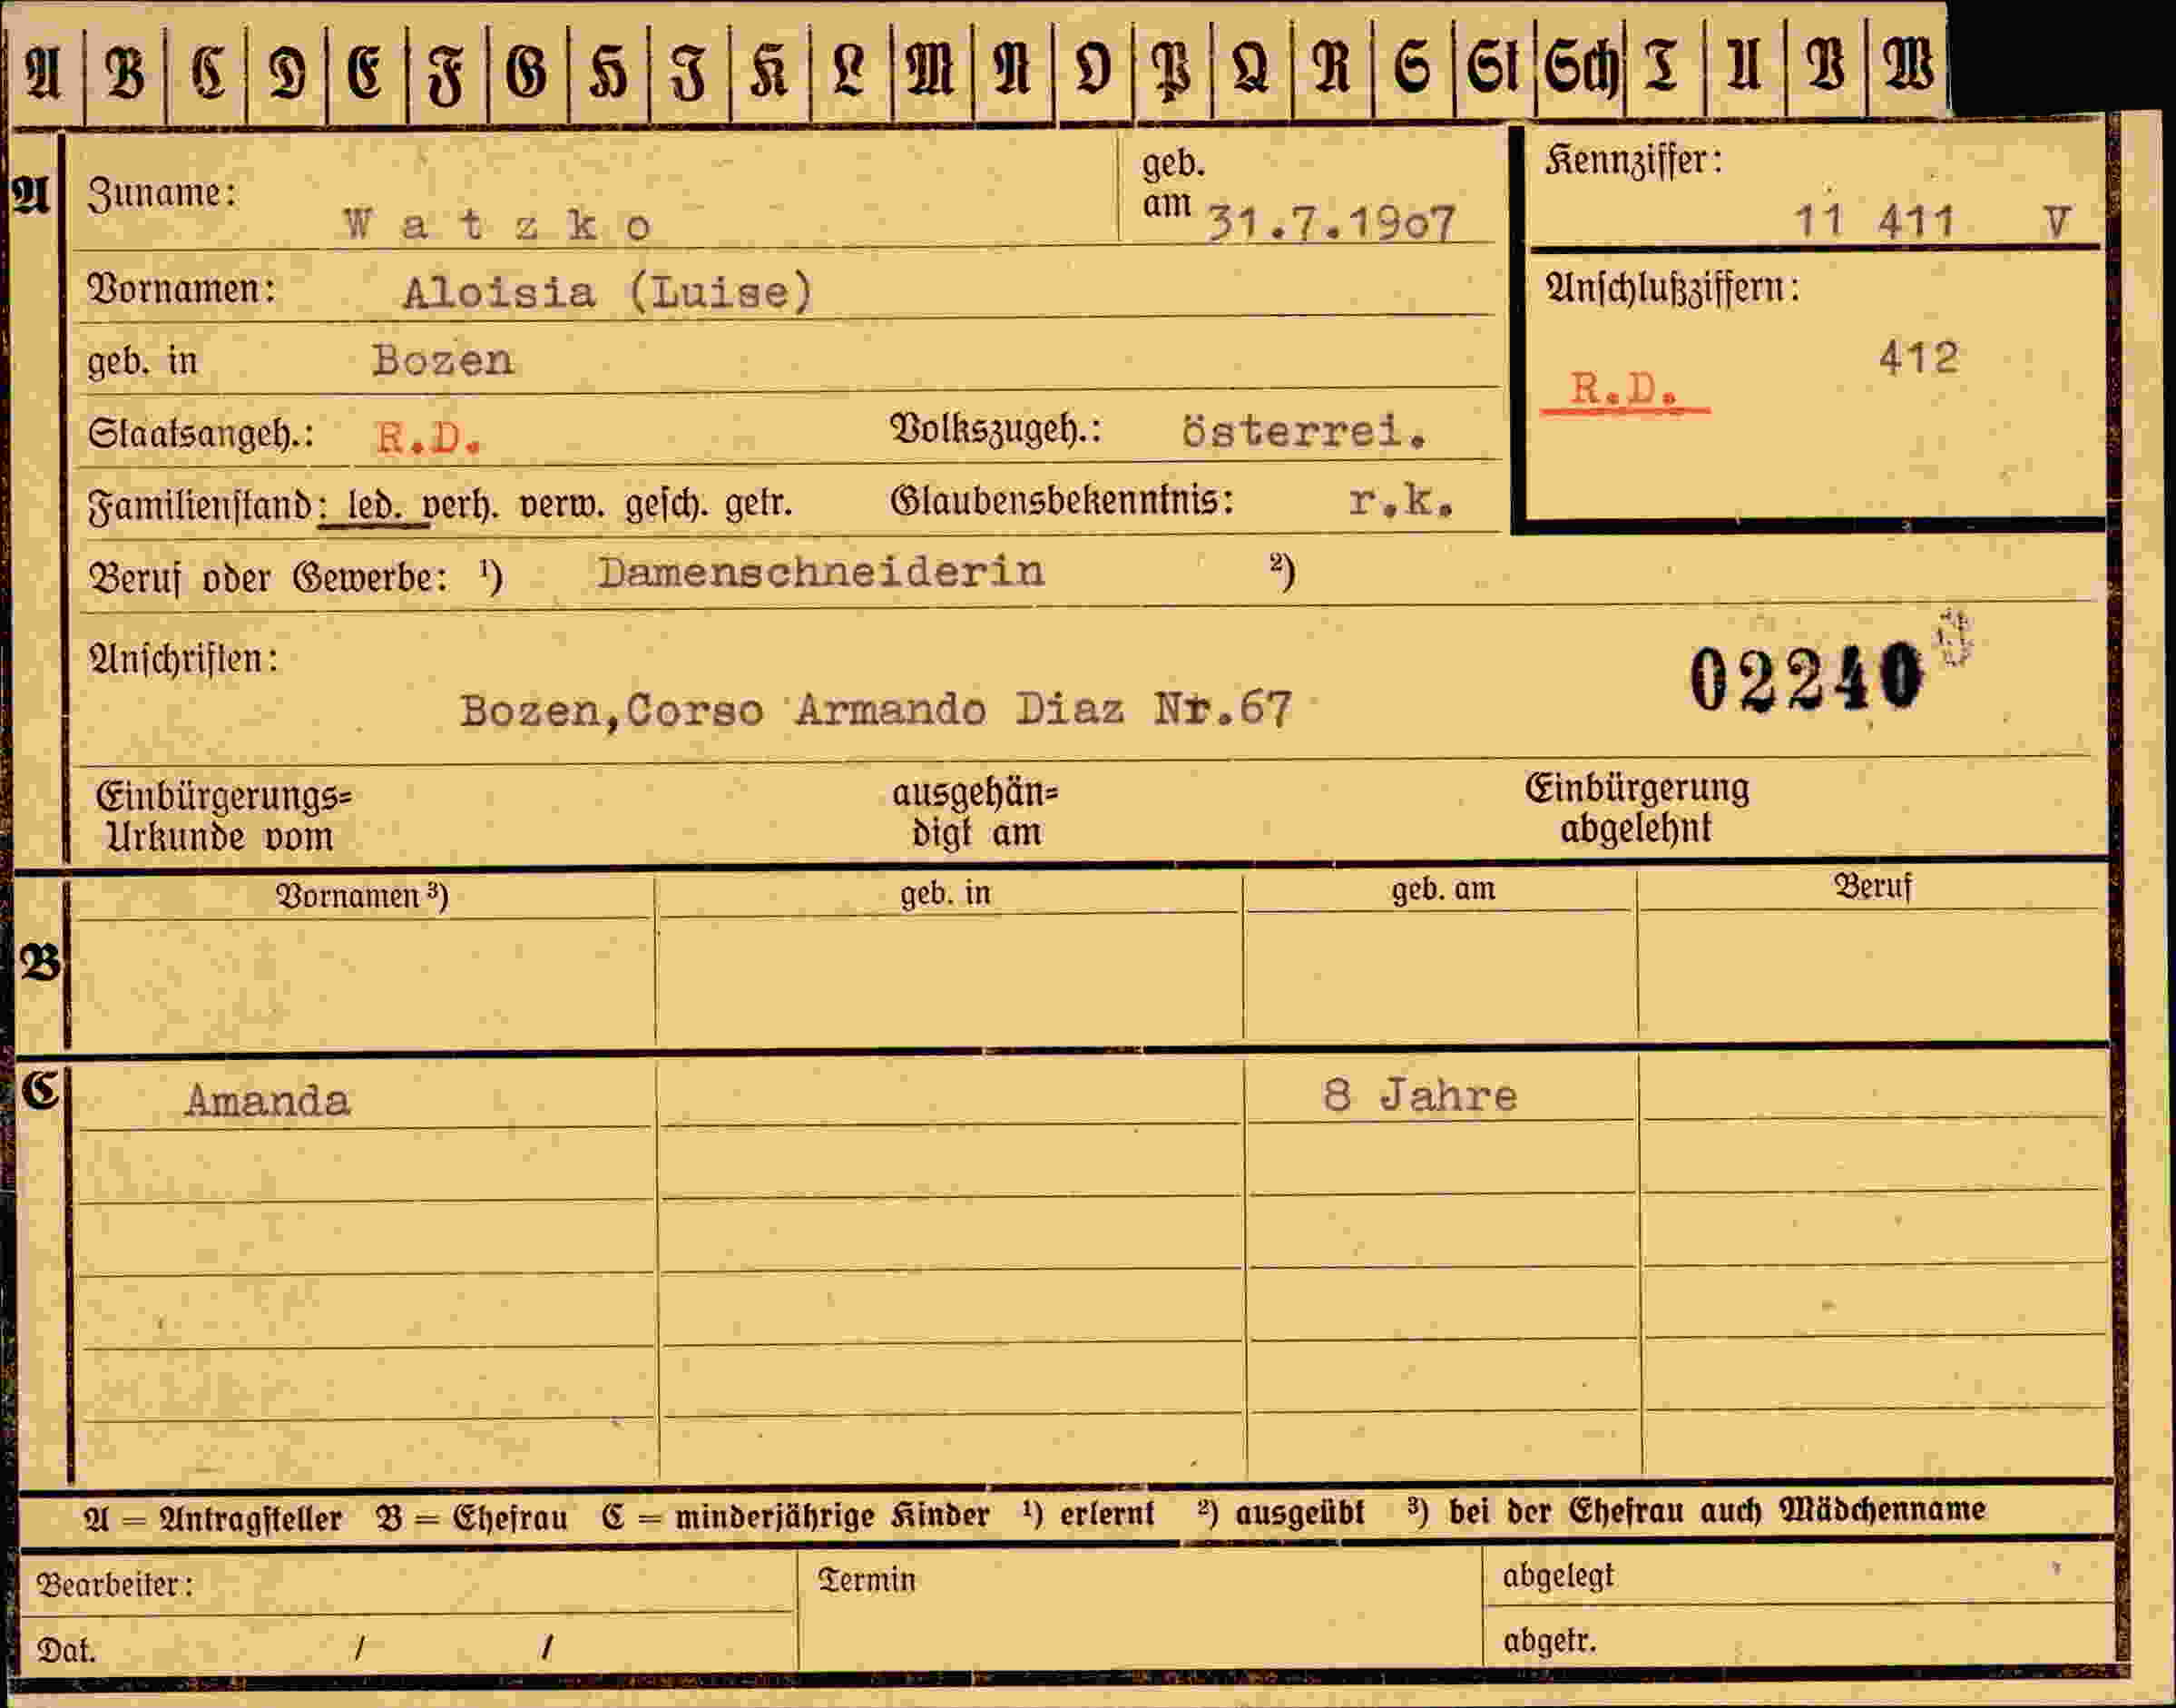 A B C D E F G H I K L M N O P Q R S St Sch T U V W
A
Zuname: Watzko
geb. am 31.7.1907
Kennziffer: 11 411 V
Vornamen: Aloisia (Luise)
Anschlußziffern:
412
R.D.
geb. in Bozen
Staatsangeh.: R.D. Volkszugeh.: österrei.
Familienstand: led. verh. verw. gesch. getr. Glaubensbekenntnis: r.k.
Beruf oder Gewerbe: ¹) Damenschneiderin ²)
Anschriften:
02240
Bozen,Corso Armando Diaz Nr.67
Einbürgerungs=
Urkunde vom
ausgehän=
digt am
Einbürgerung
abgelehnt
B
Vornamen ³) geb. in geb. am Beruf
C
Amanda 8 Jahre
A = Antragsteller B = Ehefrau C = minderjährige Kinder ¹) erlernt ²) ausgeübt ³) bei der Ehefrau auch Mädchenname
Bearbeiter: Termin abgelegt
Dat. / / abgetr.